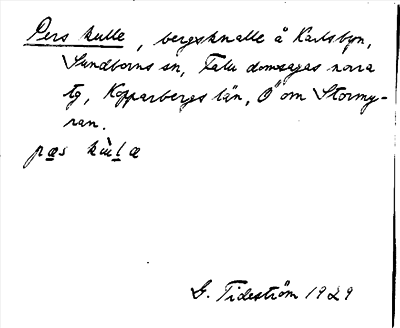 Pers kulle, bergsknalle å Karlsbyn,
Sundborns sn, Falu domsagas norra
tg, Kopparbergs län, Ö om Stormy-
ran.
G. Tideström 1929